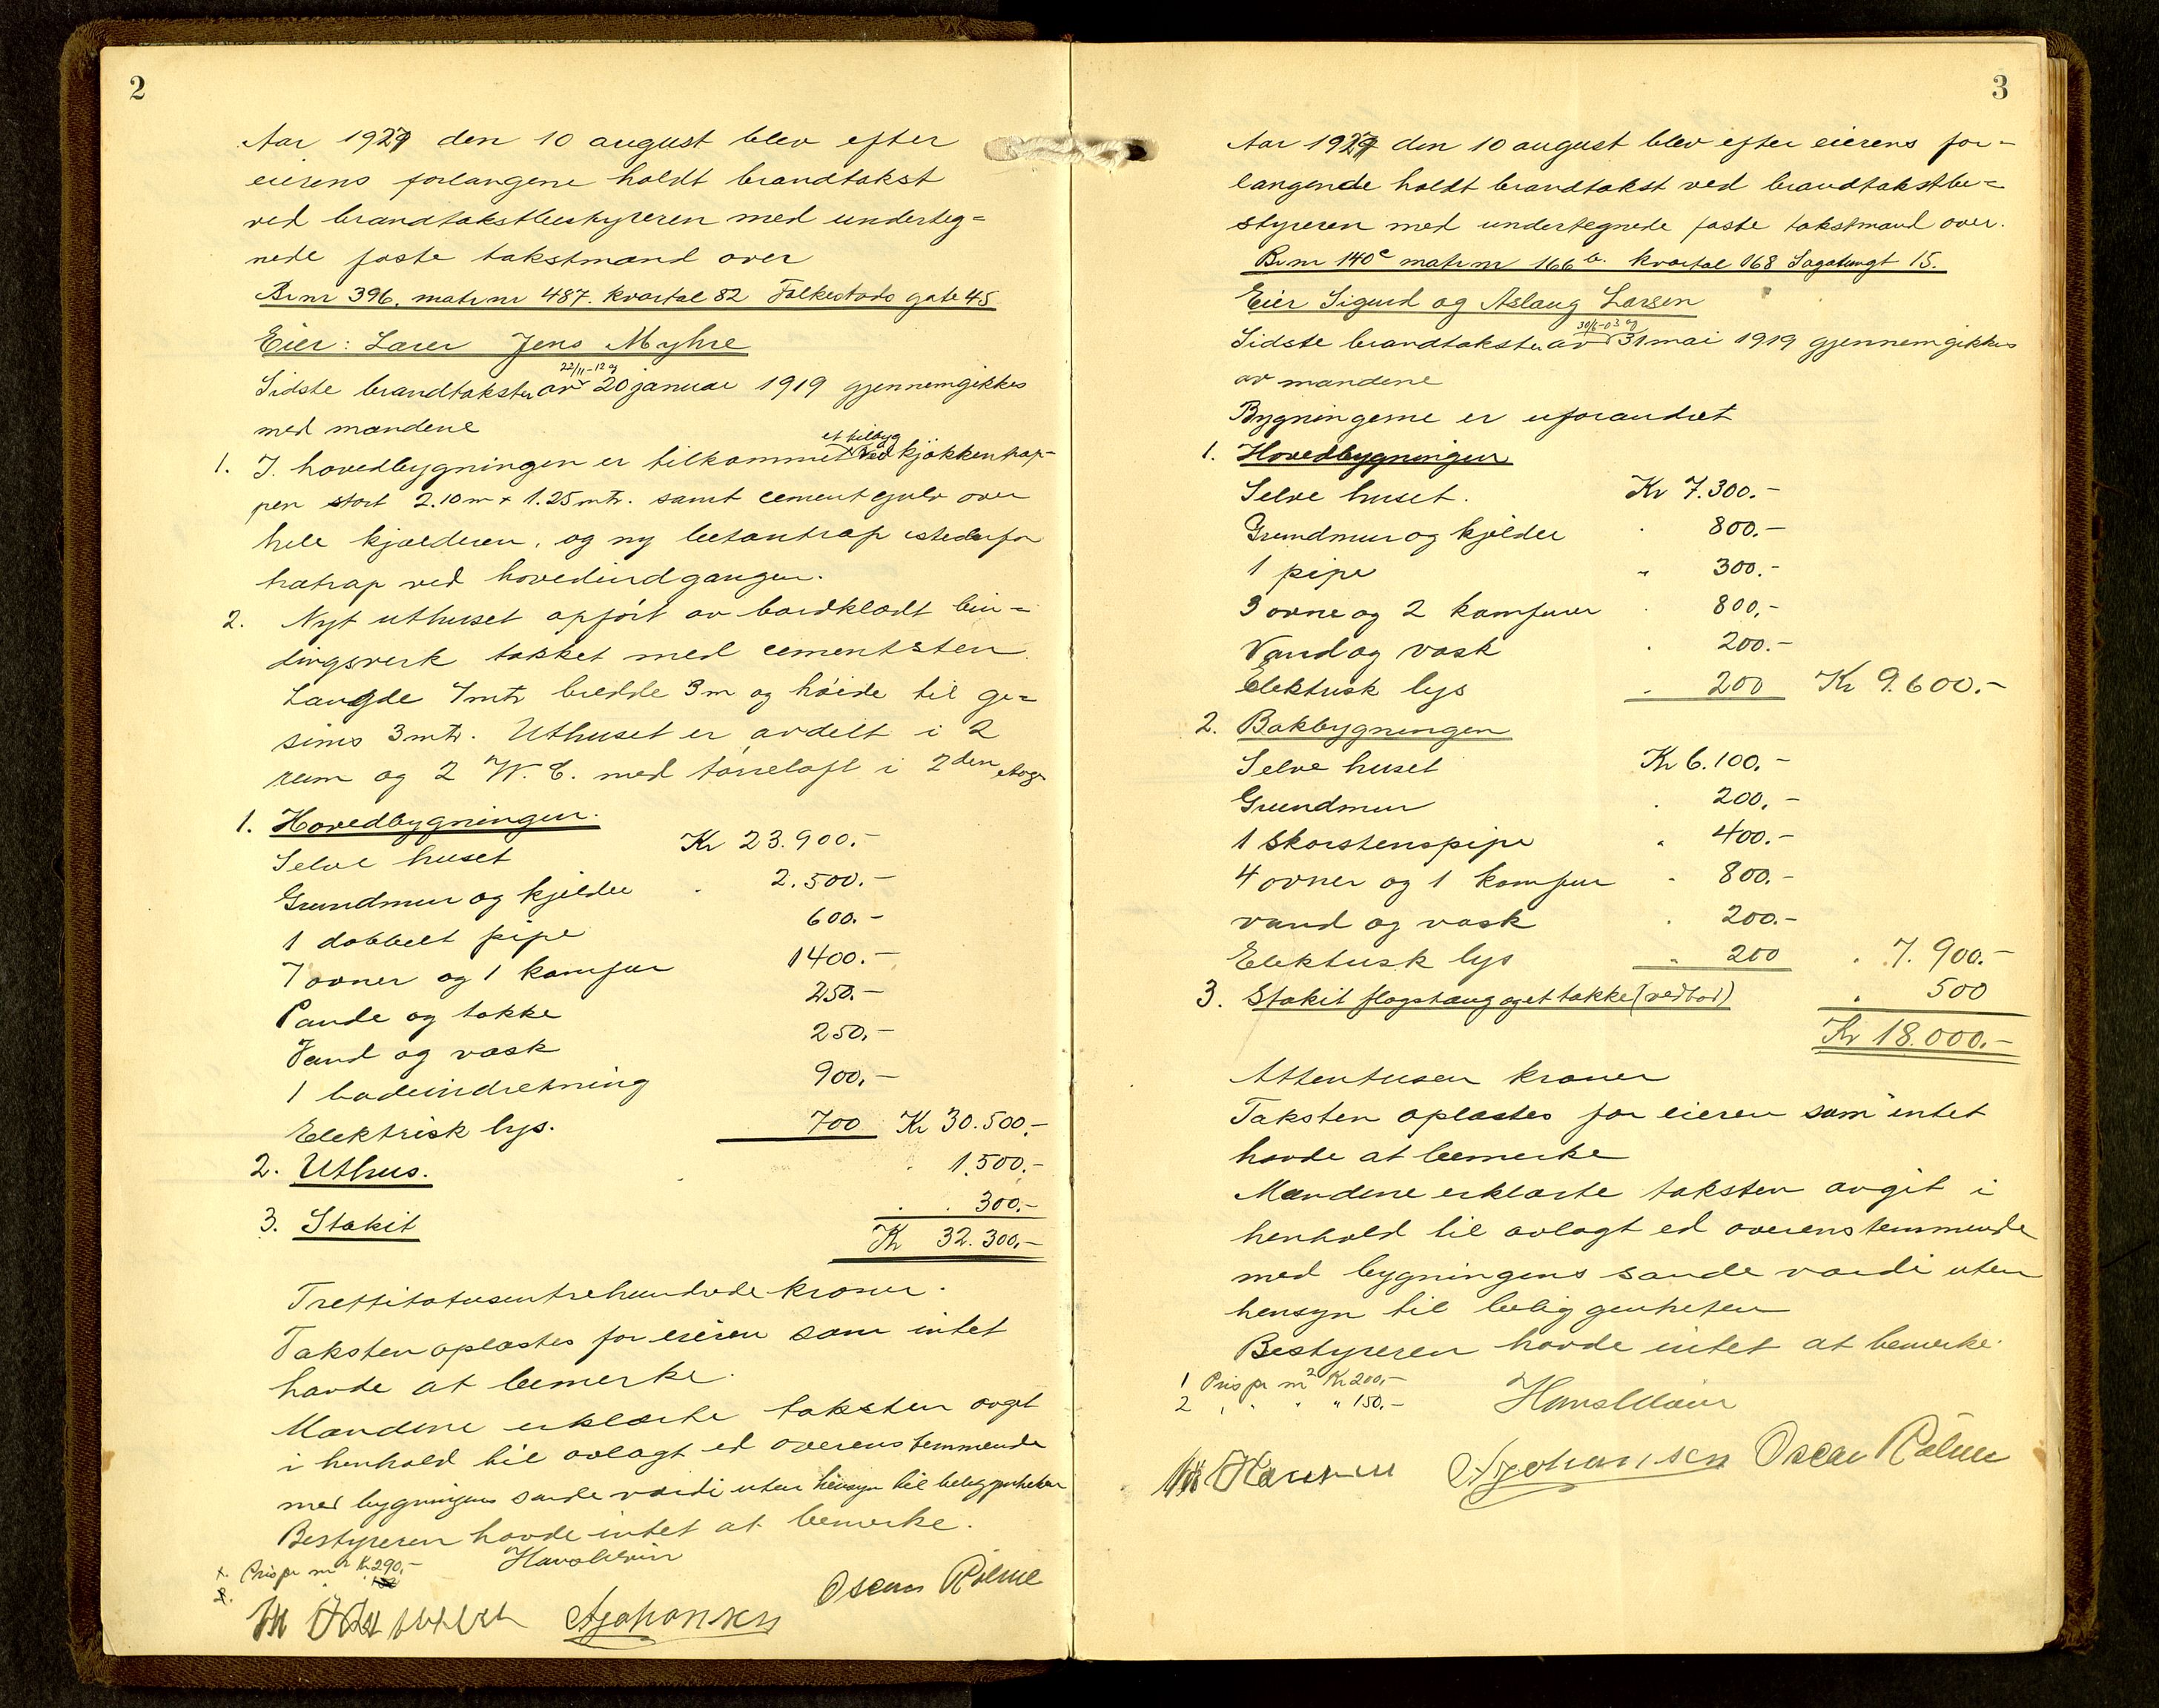 2
Aar 1929 den 10 august blev efter
eierens forlangene holdt brandtakst
ved brandtakstbestyreren med underteg=
nede faste takstmænd over
Br nr 396. matr nr 487. kvartal 82 Falkestads gate 45
Eier: Lærer Jens Myhre
22/11-12 og
Sidste brandtakster av 20 januar 1919 gjennemgikkes
med mændene
et tilbyg
1. I. hovedbygningen er tilkommet ved kjøkkentrap-
pen stort 2.10 m x 1.25 mtr. samt cementgulv over
hele kjælderen, og ny betontrap istedenfor
trætrap ved hovedindgangen.
2. Nyt uthuset opført av bordklædt bin=
dingsverk tækket med cementsten.
Længde 7 mtr bredde 3 m og høide til ge=
sims 3 mtr. Uthuset er avdelt i 2
rum og 2 W.C. med tørreloft i 2den etage
1. Hovedbygningen.
Selve huset Kr 23.900.-
Grundmur og kjelder " 2.500.-
1 dobbelt pipe 600.-
7 ovner og 1 komfur 1400.-
Pande og takke 250.-
Vand og vask 250.-
1 badeindretning 900.-
Elektrisk lys. 700 Kr 30.500.-
2. Uthus. " 1.500.-
3. Stakit " " 300.-
Kr 32.300.-
Trettitotusentrehundrede kroner.
Taksten oplæstes for eieren som intet
havde at bemerke.
Mændene erklærte taksten avgit
i henhold til avlagt ed overenstemmende
med bygningens sande værdi uten hensyn til beliggenheten
Bestyreren havde intet at bemerke.
1. Pris pr m2 Kr 290.-
2.
A Johansen Oscar Rølme
3
Aar 1929 den 10 august blev efter eierens for-
langende holdt brandtakst ved brandtakstbe=
styreren med undertegnede faste takstmænd over.
Br nr 140c matr nr 166 b. kvartal 168 Sagatungt 15.
Eier Sigurd og Aslaug Larsen
30/6-03 og
Sidste brandtakster av 31 mai 1919 gjennemgikkes
av mændene
Bygningerne er uforandret
1. Hovedbygningen
Selve huset. Kr 7.300.-
Grundmur og kjelder " 800.-
1 pipe " 300.-
3 ovne og 2 komfurer " 800.-
Vand og vask " 200.-
Elektrisk lys " 200 Kr 9.600.-
2. Bakbygningen
Selve huset Kr 6.100.-
Grundmur " 200.-
1 Skorstenspipe " 400.-
4 ovner og 1 komfur " 800.-
vand og vask " 200.-
Elektrisk lys " 200 " 7.900.-
3. Stakit flagstang og et takke (vedbod) " 500
Kr 18.000.-
Attentusen kroner
Taksten oplæstes for eieren som intet
havde at bemerke
Mændene erklærte taksten avgit i
henhold til avlagt ed overenstemmende
med bygningens sande værdi uten
hensyn til beliggenheten
Bestyreren havde intet at bemerke.
1 Pris pr m2 Kr 200.-
2 " " " " 150.-
A Johansen Oscar Rølme